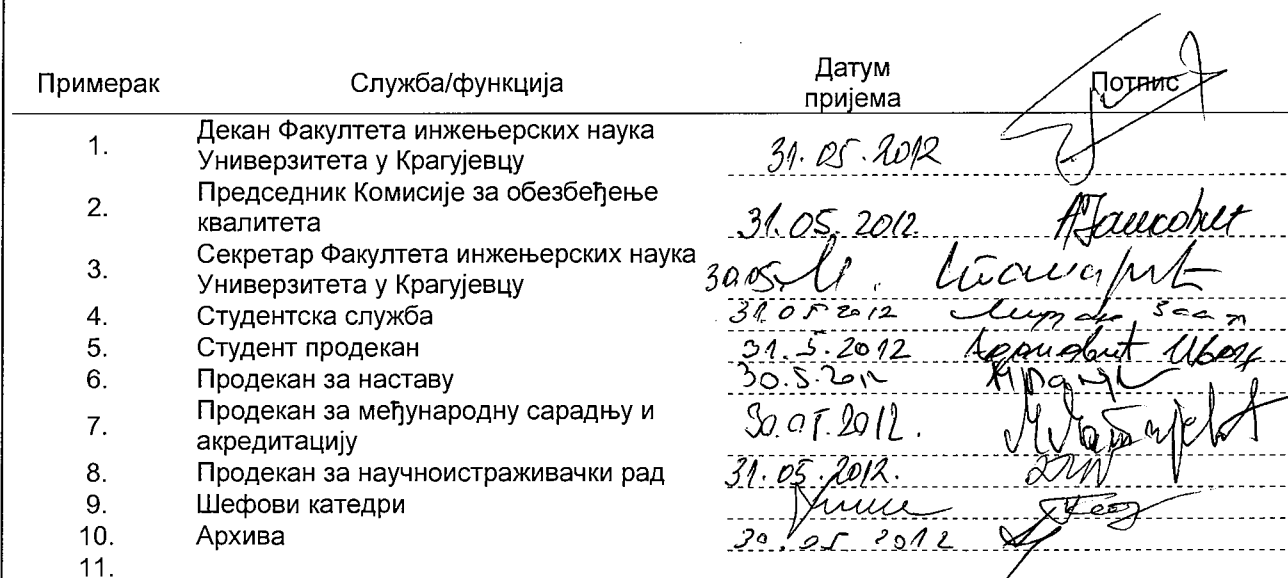 Примерак Служба/функција Датум пријема Потпис
1. Декан Факултета инжењерских наука
Универзитета у Крагујевцу 31.05.2012
2. Председник Комисије за обезбеђење
квалитета 31.05.2012
3. Секретар Факултета инжењерских наука
Универзитета у Крагујевцу 30.05.
4. Студентска служба 31.05.2012
5. Студент продекан 31.5.2012
6. Продекан за наставу 30.5.2012
7. Продекан за међународну сарадњу и
акредитацију 30.05.2012.
8. Продекан за научноистраживачки рад 31.05.2012.
9. Шефови катедри
10. Архива 30.05.2012
11.